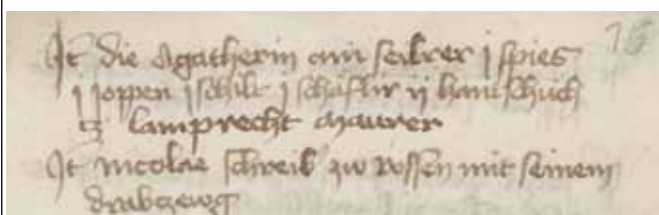 It die Agatherin ain seibrer j spies
j joppen j schilt j schaflir ij hantschuch
tz lamprecht maurer
It nicolae schreib zw rossen mit seinem
drabczewg
15